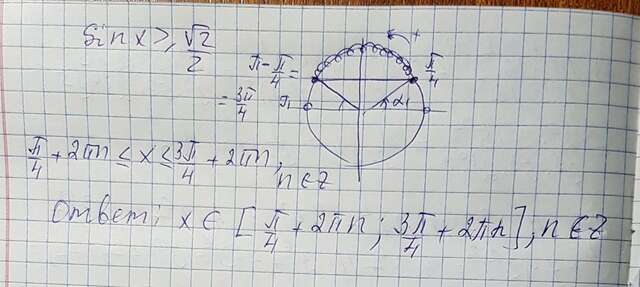 Sin x ≥ √2/2
π - π/4 =
= 3π/4
π
+
π/4
α1
π/4 + 2πn ≤ x ≤ 3π/4 + 2πn,
n ∈ Z
Ответ: x ∈ [π/4 + 2πn; 3π/4 + 2πn], n ∈ Z